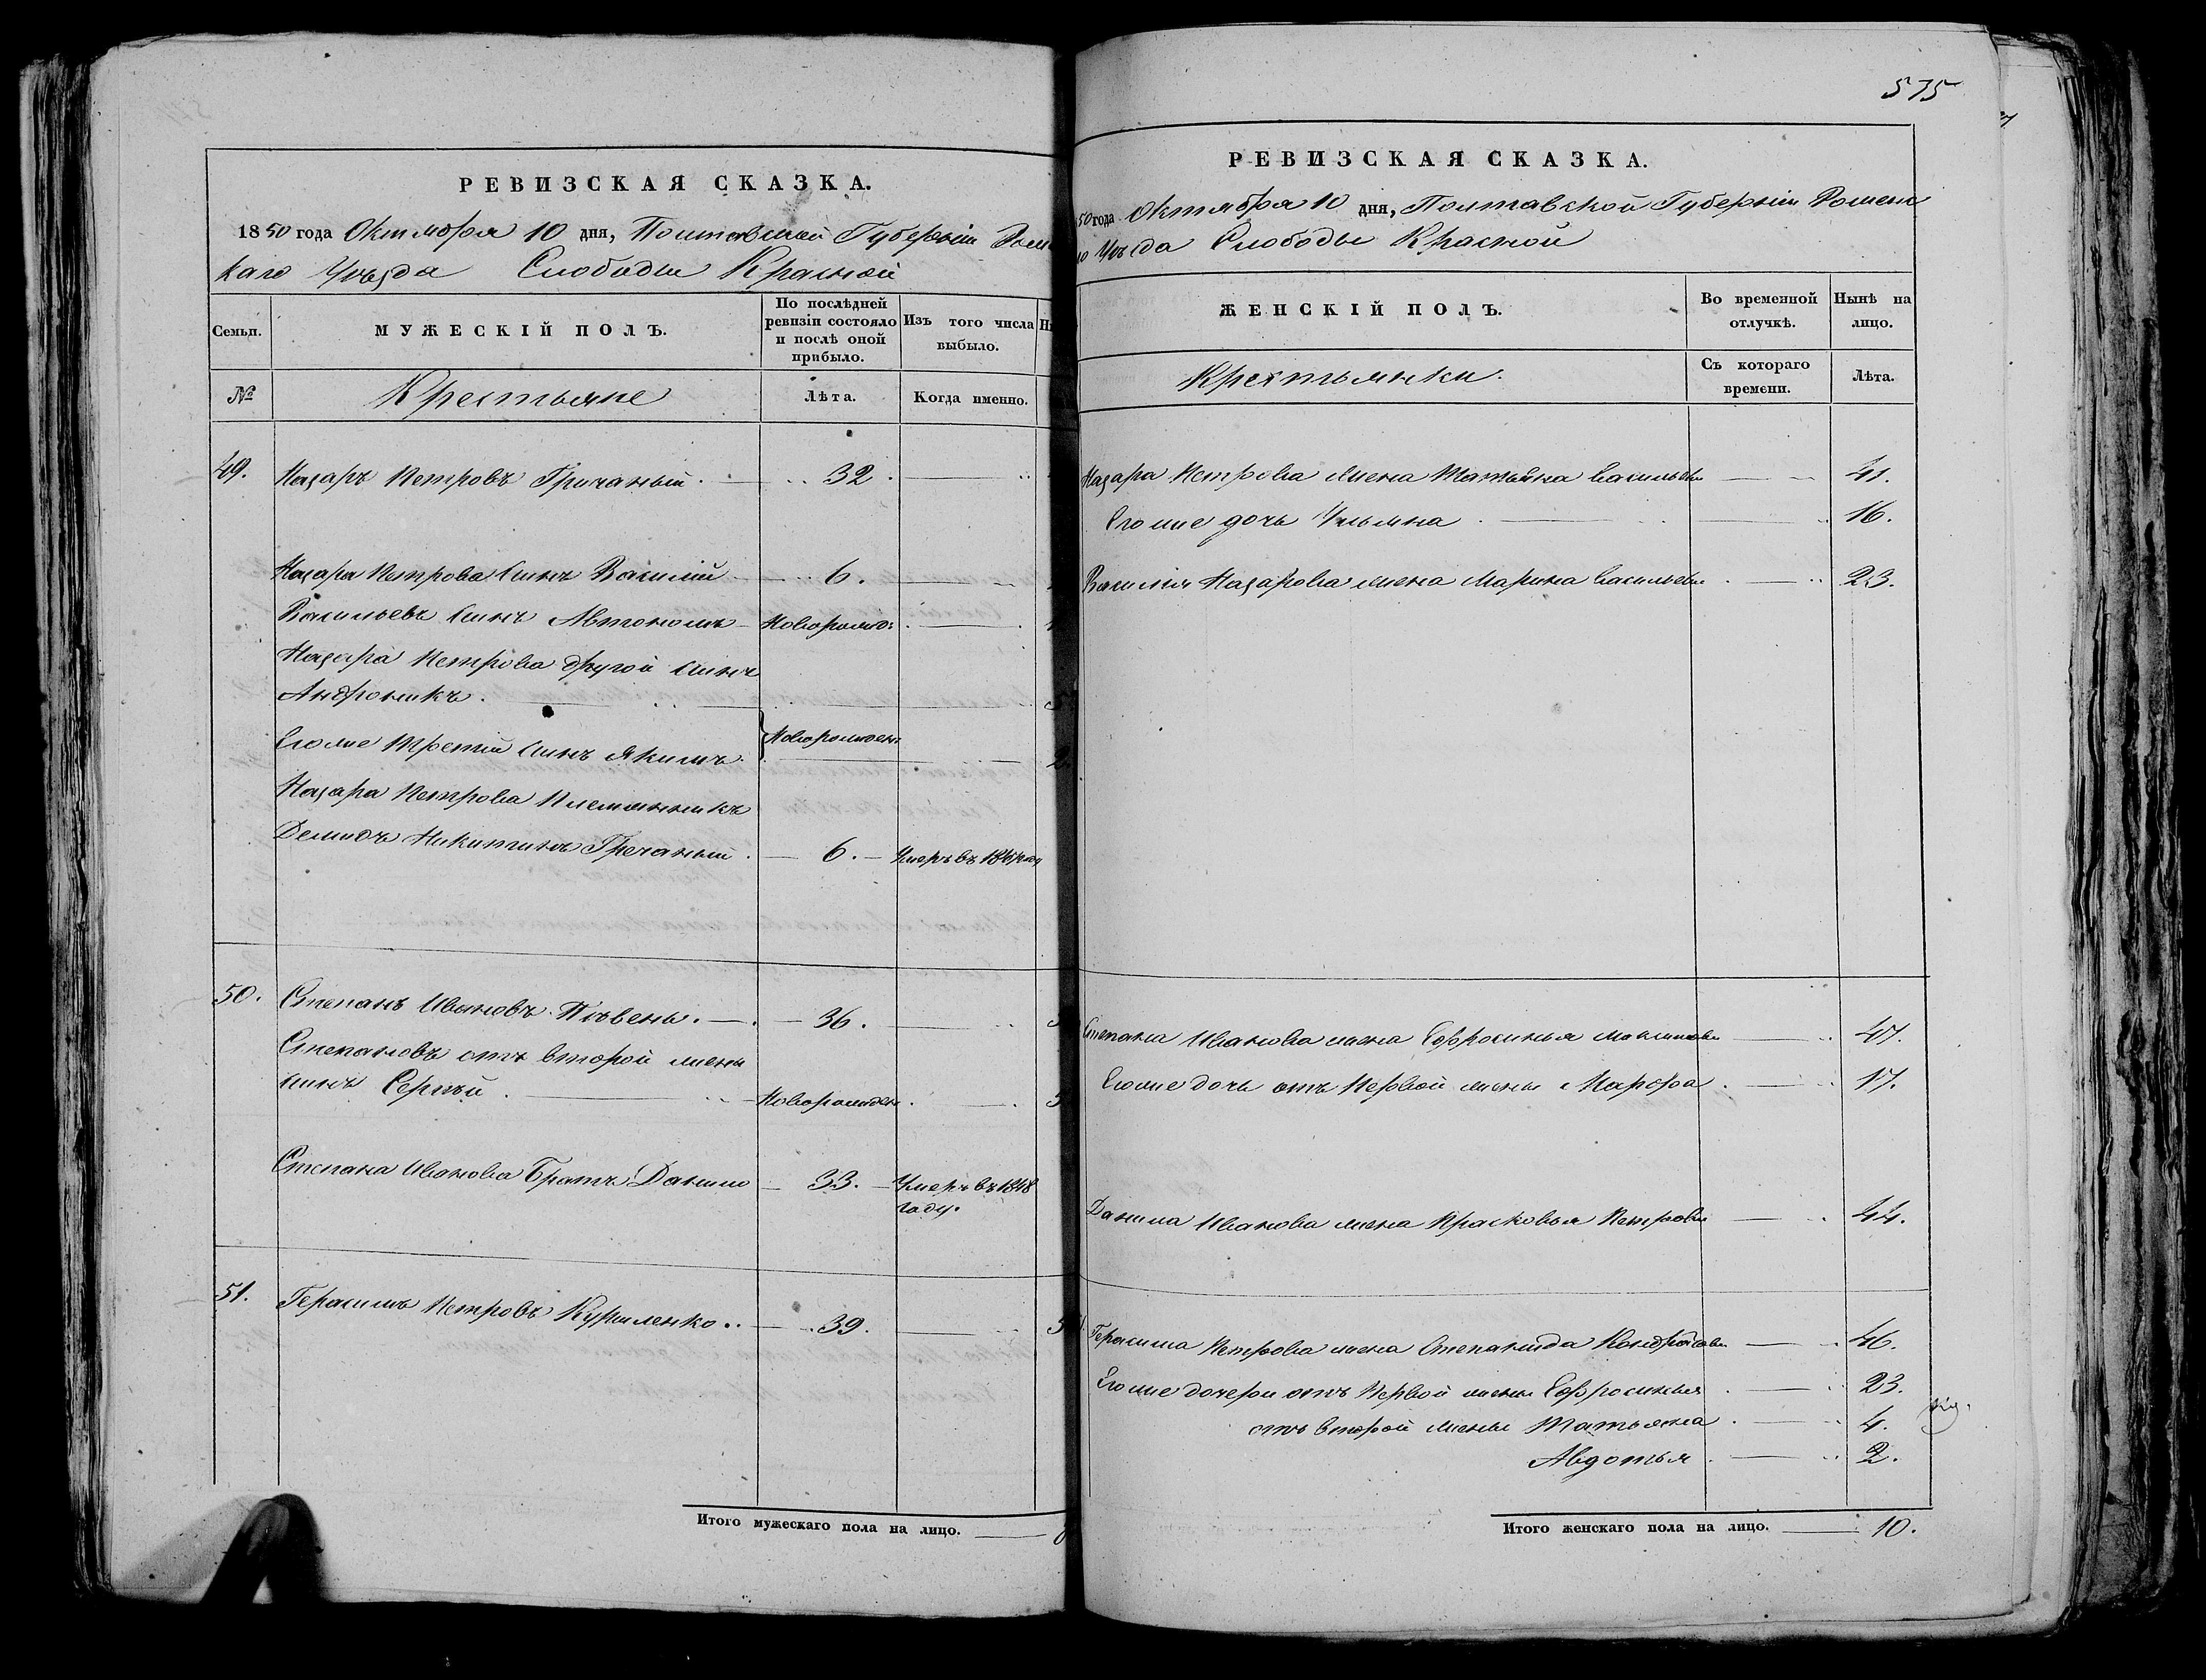 РЕВИЗСКАЯ СКАЗКА.
1850 года Октября 10 дня, Полтавской Губерніи Роме
каго Уѣзда Слободы Красной
Семьи.
МУЖЕСКІЙ ПОЛЪ.
По послѣдней ревизіи состояло и послѣ оной прибыло.
Изъ того числа выбыло.
№
Крестьяне
Лѣта.
Когда именно.
49. Назаръ Петровъ Гричаный. 32.
Назара Петрова сынъ Василій 6.
Васильевъ сынъ Автономъ Новорожд:
Назара Петрова другой сынъ
Андроникъ.
Егоже третій сынъ Якимъ. Новорожден
Назара Петрова племянникъ
Демидъ Никитинъ Гречаный. 6. Умеръ въ
50. Степанъ Ивановъ Пѣвень. 36.
Степановъ отъ второй жены
сынъ Сергѣй Новорожден
Степана Иванова Братъ Данило 33. Умеръ въ 1848
году.
51. Герасимъ Петровъ Куриленко.. 39.
Итого мужескаго пола на лицо.
575
РЕВИЗСКАЯ СКАЗКА.
50 года Октября 10 дня, Полтавской Губерніи Роменс
го Уѣзда Слободы Красной
ЖЕНСКІЙ ПОЛЪ.
Во временной отлучкѣ.
Нынѣ на лицо.
Крестьянки.
Съ котораго времени.
Лѣта.
Назара Петрова жена Татьяна Васильева 41.
Егоже дочь Ульяна 16.
Василія Назарова жена Марина Васильева 23.
Степана Иванова жена Ефросинья Максимова 47.
Егоже дочь отъ первой жены Марфа. 17.
Данила Иванова жена Прасковья Петрова 44.
Герасима Петрова жена Степанида Кондратова 46.
Егоже дочери отъ первой жены Ефросинья 23.
отъ второй жены Татьяна 4.
Авдотья 2.
Итого женскаго пола на лицо. 10.